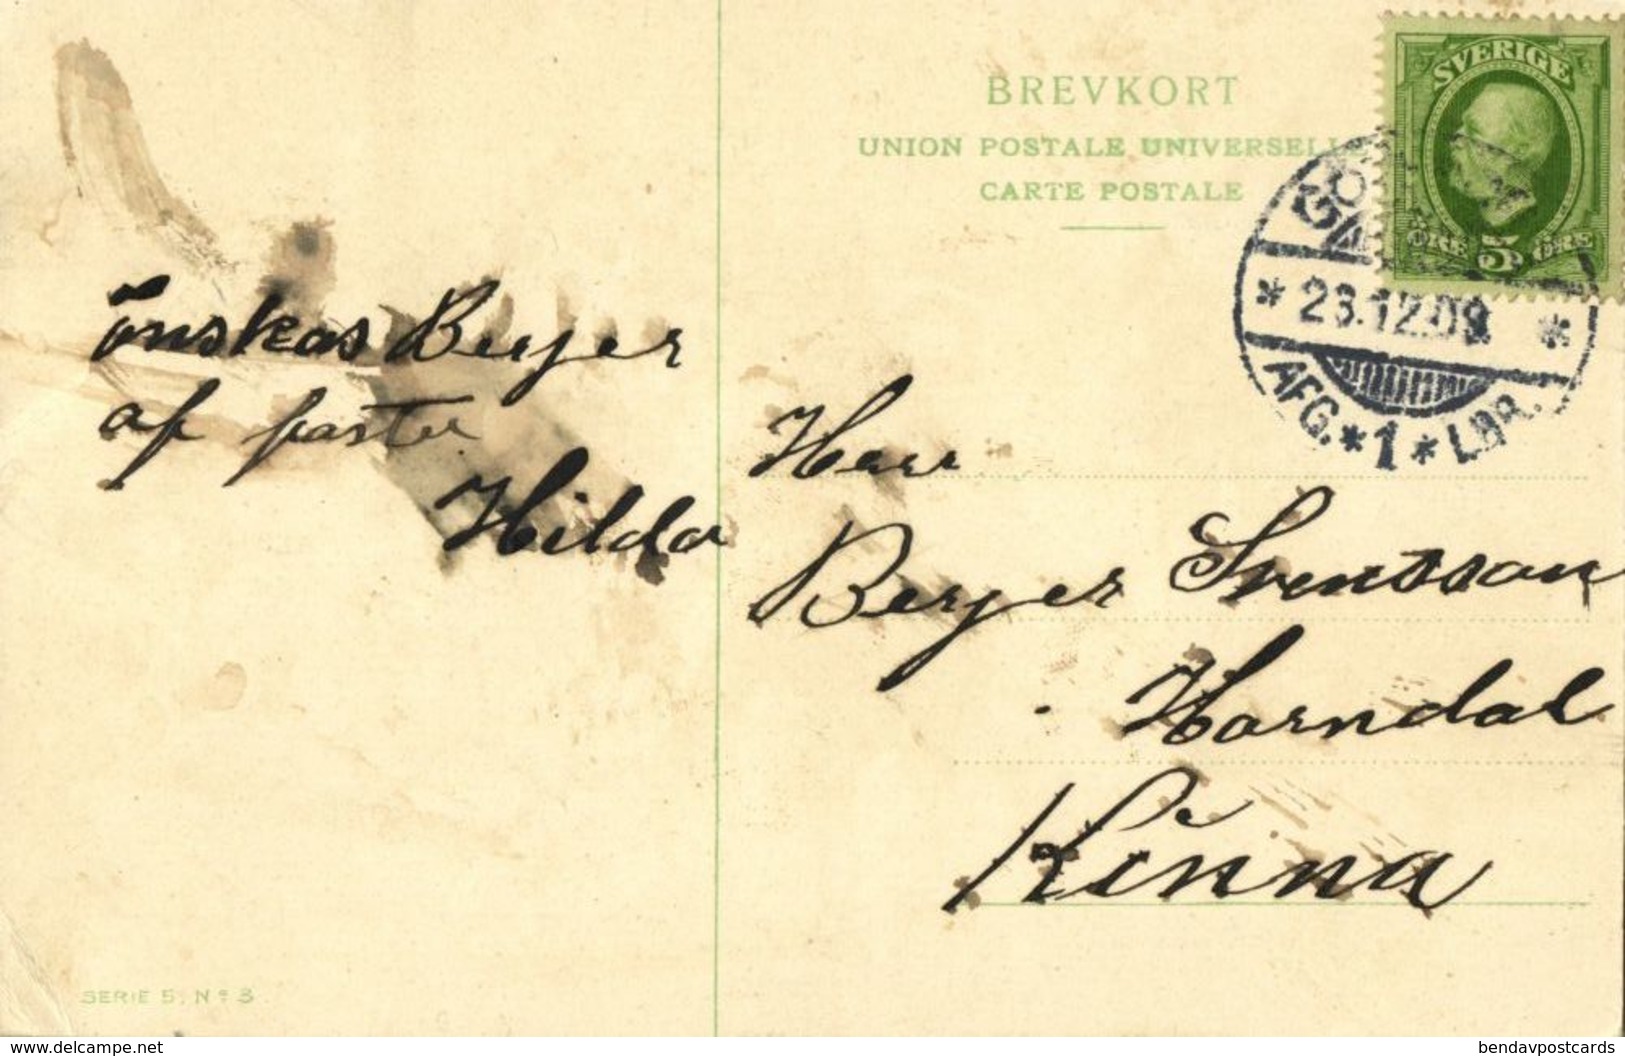 BREVKORT
UNION POSTALE UNIVERSELLE
CARTE POSTALE
SVERIGE
ÖRE 5 ÖRE
* 23.12.09 *
AFG. * 1 * LBR.
önskas Berjer
af faster
Hilda
Herr
Berjer Svensson
Horndal
Kinna
SERIE 5, Nº 3
delcampe.net
bendavpostcards